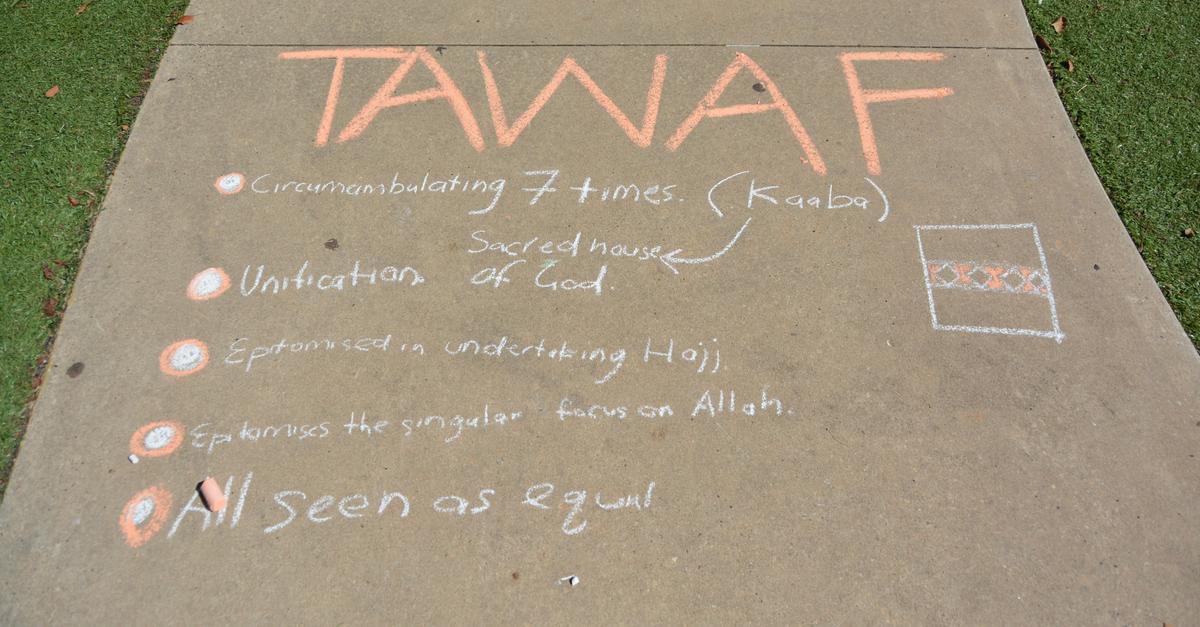 TAWAF
Circumambulating 7 times. (Kaaba)
Sacred house
of God.
Unification
Epitomised in undertaking Hajj.
Epitomises the singular focus on Allah.
All seen as equal